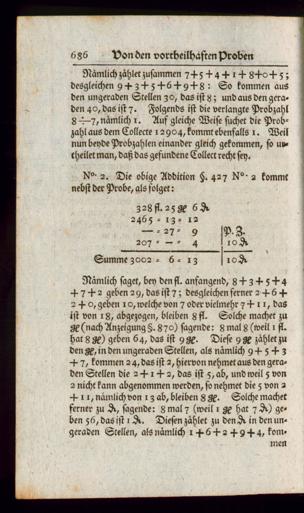 686 Von den vortheilhaften Proben
Nämlich zählet zusammen 7+5+4+1+8+0+5;
desgleichen 9+3+5+6+9+8: So kommen aus
den ungeraden Stellen 30, das ist 8; und aus den gera-
den 40, das ist 7. Folgends ist die verlangte Probzahl
8÷7, nämlich 1. Auf gleiche Weise suchet die Prob-
zahl aus dem Collecte 12904, kommt ebenfalls 1. Weil
nun beyde Probzahlen einander gleich gekommen, so ur-
theilet man, daß das gefundene Collect recht sey.
No. 2. Die obige Addition §. 427 No. 2 kommt
nebst der Probe, als folget:
328 fl. 25 β 6 ₰
2465 = 13 = 12
— = 27 = 9 P. Z.
207 = — = 4 10 ₰
Summe 3002 = 6 = 13 10 ₰
Nämlich saget, bey den fl. anfangend, 8+3+5+4
+7+2 geben 29, das ist 7; desgleichen ferner 2+6+
2+0, geben 10, welche von 7 oder vielmehr 7+11, das
ist von 18, abgezogen, bleiben 8 fl. Solche machet zu
β (nach Anzeigung §. 870) sagende: 8 mal 8 (weil 1 fl.
hat 8 β) geben 64, das ist 9 β. Diese 9 β zählet zu
den β, in den ungeraden Stellen, als nämlich 9+5+3
+7, kommen 24, das ist 2, hiervon nehmet aus den gera-
den Stellen die 2+1+2, das ist 5, ab, und weil 5 von
2 nicht kann abgenommen werden, so nehmet die 5 von 2
+11, nämlich von 13 ab, bleiben 8 β. Solche machet
ferner zu ₰, sagende: 8 mal 7 (weil 1 β hat 7 ₰) ge-
ben 56, das ist 1 ₰. Diesen zählet zu den ₰ in den un-
geraden Stellen, als nämlich 1+6+2+9+4, kom-
men